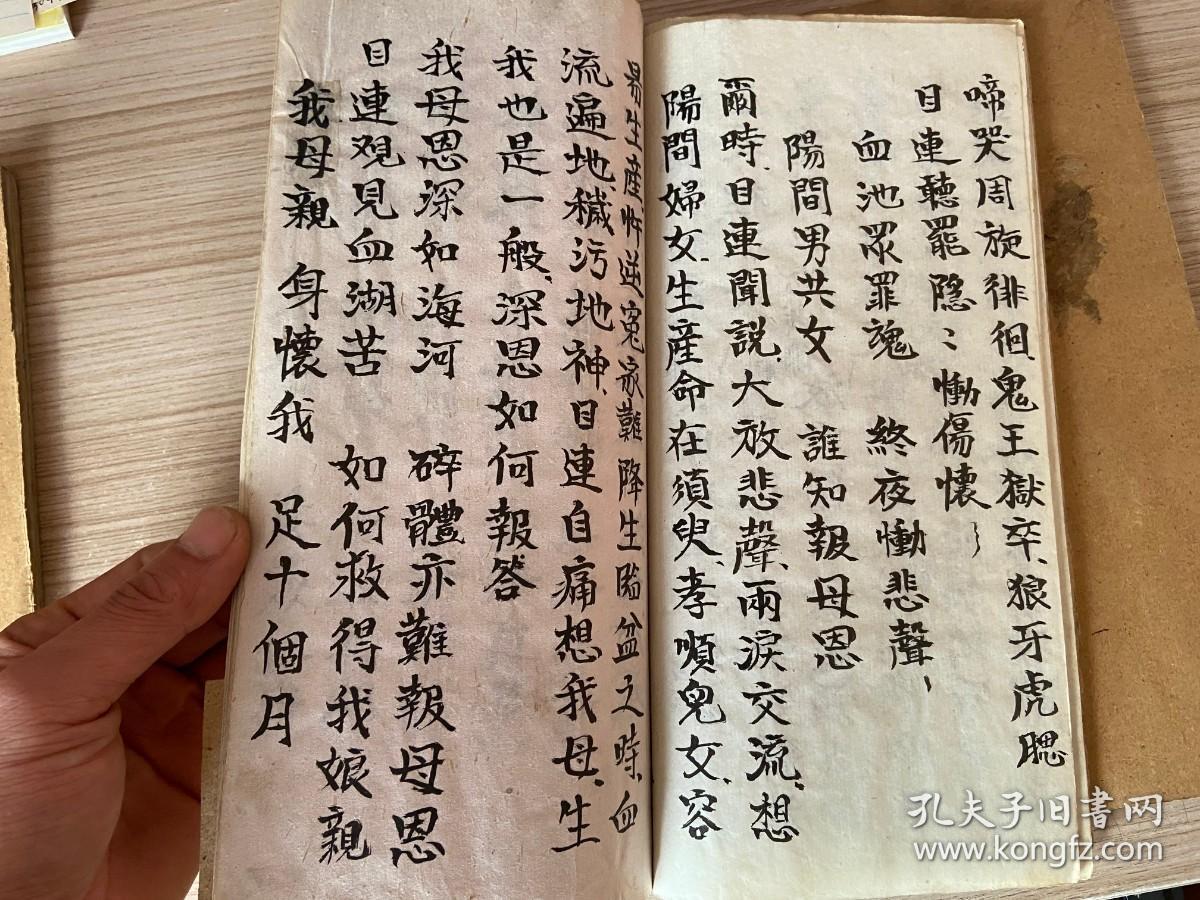 啼哭周旋徘徊鬼王獄卒、狼牙虎腮
目連聽罷隱〻慟傷懷〻
血池眾罪魂　終夜慟悲聲、
陽間男共女　誰知報母恩
爾時、目連聞說、大放悲聲、兩淚交流、想
陽間婦女、生產命在須臾、孝順兒女、容
易生產忤逆寃家難降生臨盆之時、血
流遍地、穢污地神、目連自痛想我母、生
我也是一般、深恩如何報答
我母恩深如海河　碎體亦難報母恩
目連观見血湖苦　如何救得我娘親
我母親　身懷我　足十個月
孔夫子旧書网
www.kongfz.com